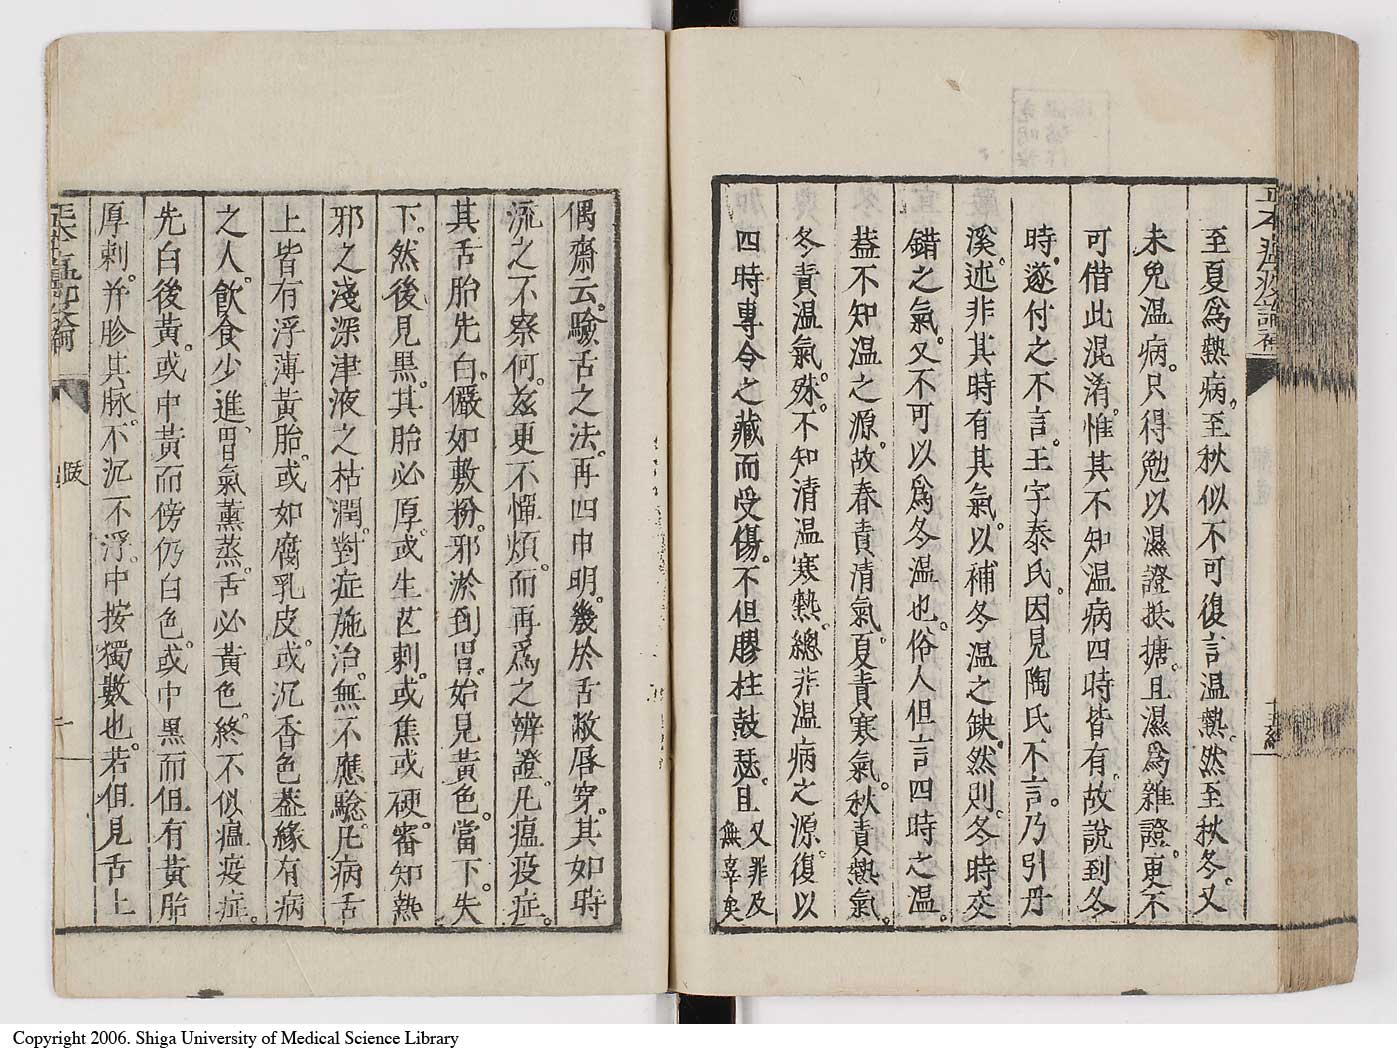 至夏爲熱病。至秋似不可復言温熱。然至秋冬。又
未免温病。只得勉以濕證搪。且濕爲雜證。更不
可借此混淆。惟其不知温病四時皆有。故說到冬
時。遂付之不言。王字泰氏。因見陶氏不言。乃引丹
溪。述非其時有其氣。以補冬温之缺。然則。冬時交
錯之氣。又不可以爲冬温也。俗人但言四時之温。
葢不知温之源。故春責清氣。夏責寒氣。秋責熱氣。
冬責温氣。殊。不知清温寒熱。總非温病之源。復以
四時專令之藏而受傷。不但膠柱鼓瑟。且又罪及無辜矣
偶齋云。驗舌之法。再四申明。幾於舌敝唇穿。其如時
流之不察何。兹更不憚煩。而再爲之辨證。凡瘟疫症。
其舌胎先白。儼如敷粉。邪淤到胃。始見黃色。當下。失
下。然後見黒。其胎必厚。或生芒刺。或焦或硬。審知熱
邪之淺深津液之枯潤。對症施治。無不應驗。凡病舌
上皆有浮薄黃胎。或如腐乳皮。或沉香色葢緣有病
之人。飲食少進。胃氣薰蒸。舌必黃色。終不似瘟疫症。
先白後黃。或中黃而傍仍白色。或中黒而但有黃胎
厚刺。并胗其脉。不沉不浮。中按獨數也。若但見舌上
Copyright 2006. Shiga University of Medical Science Library